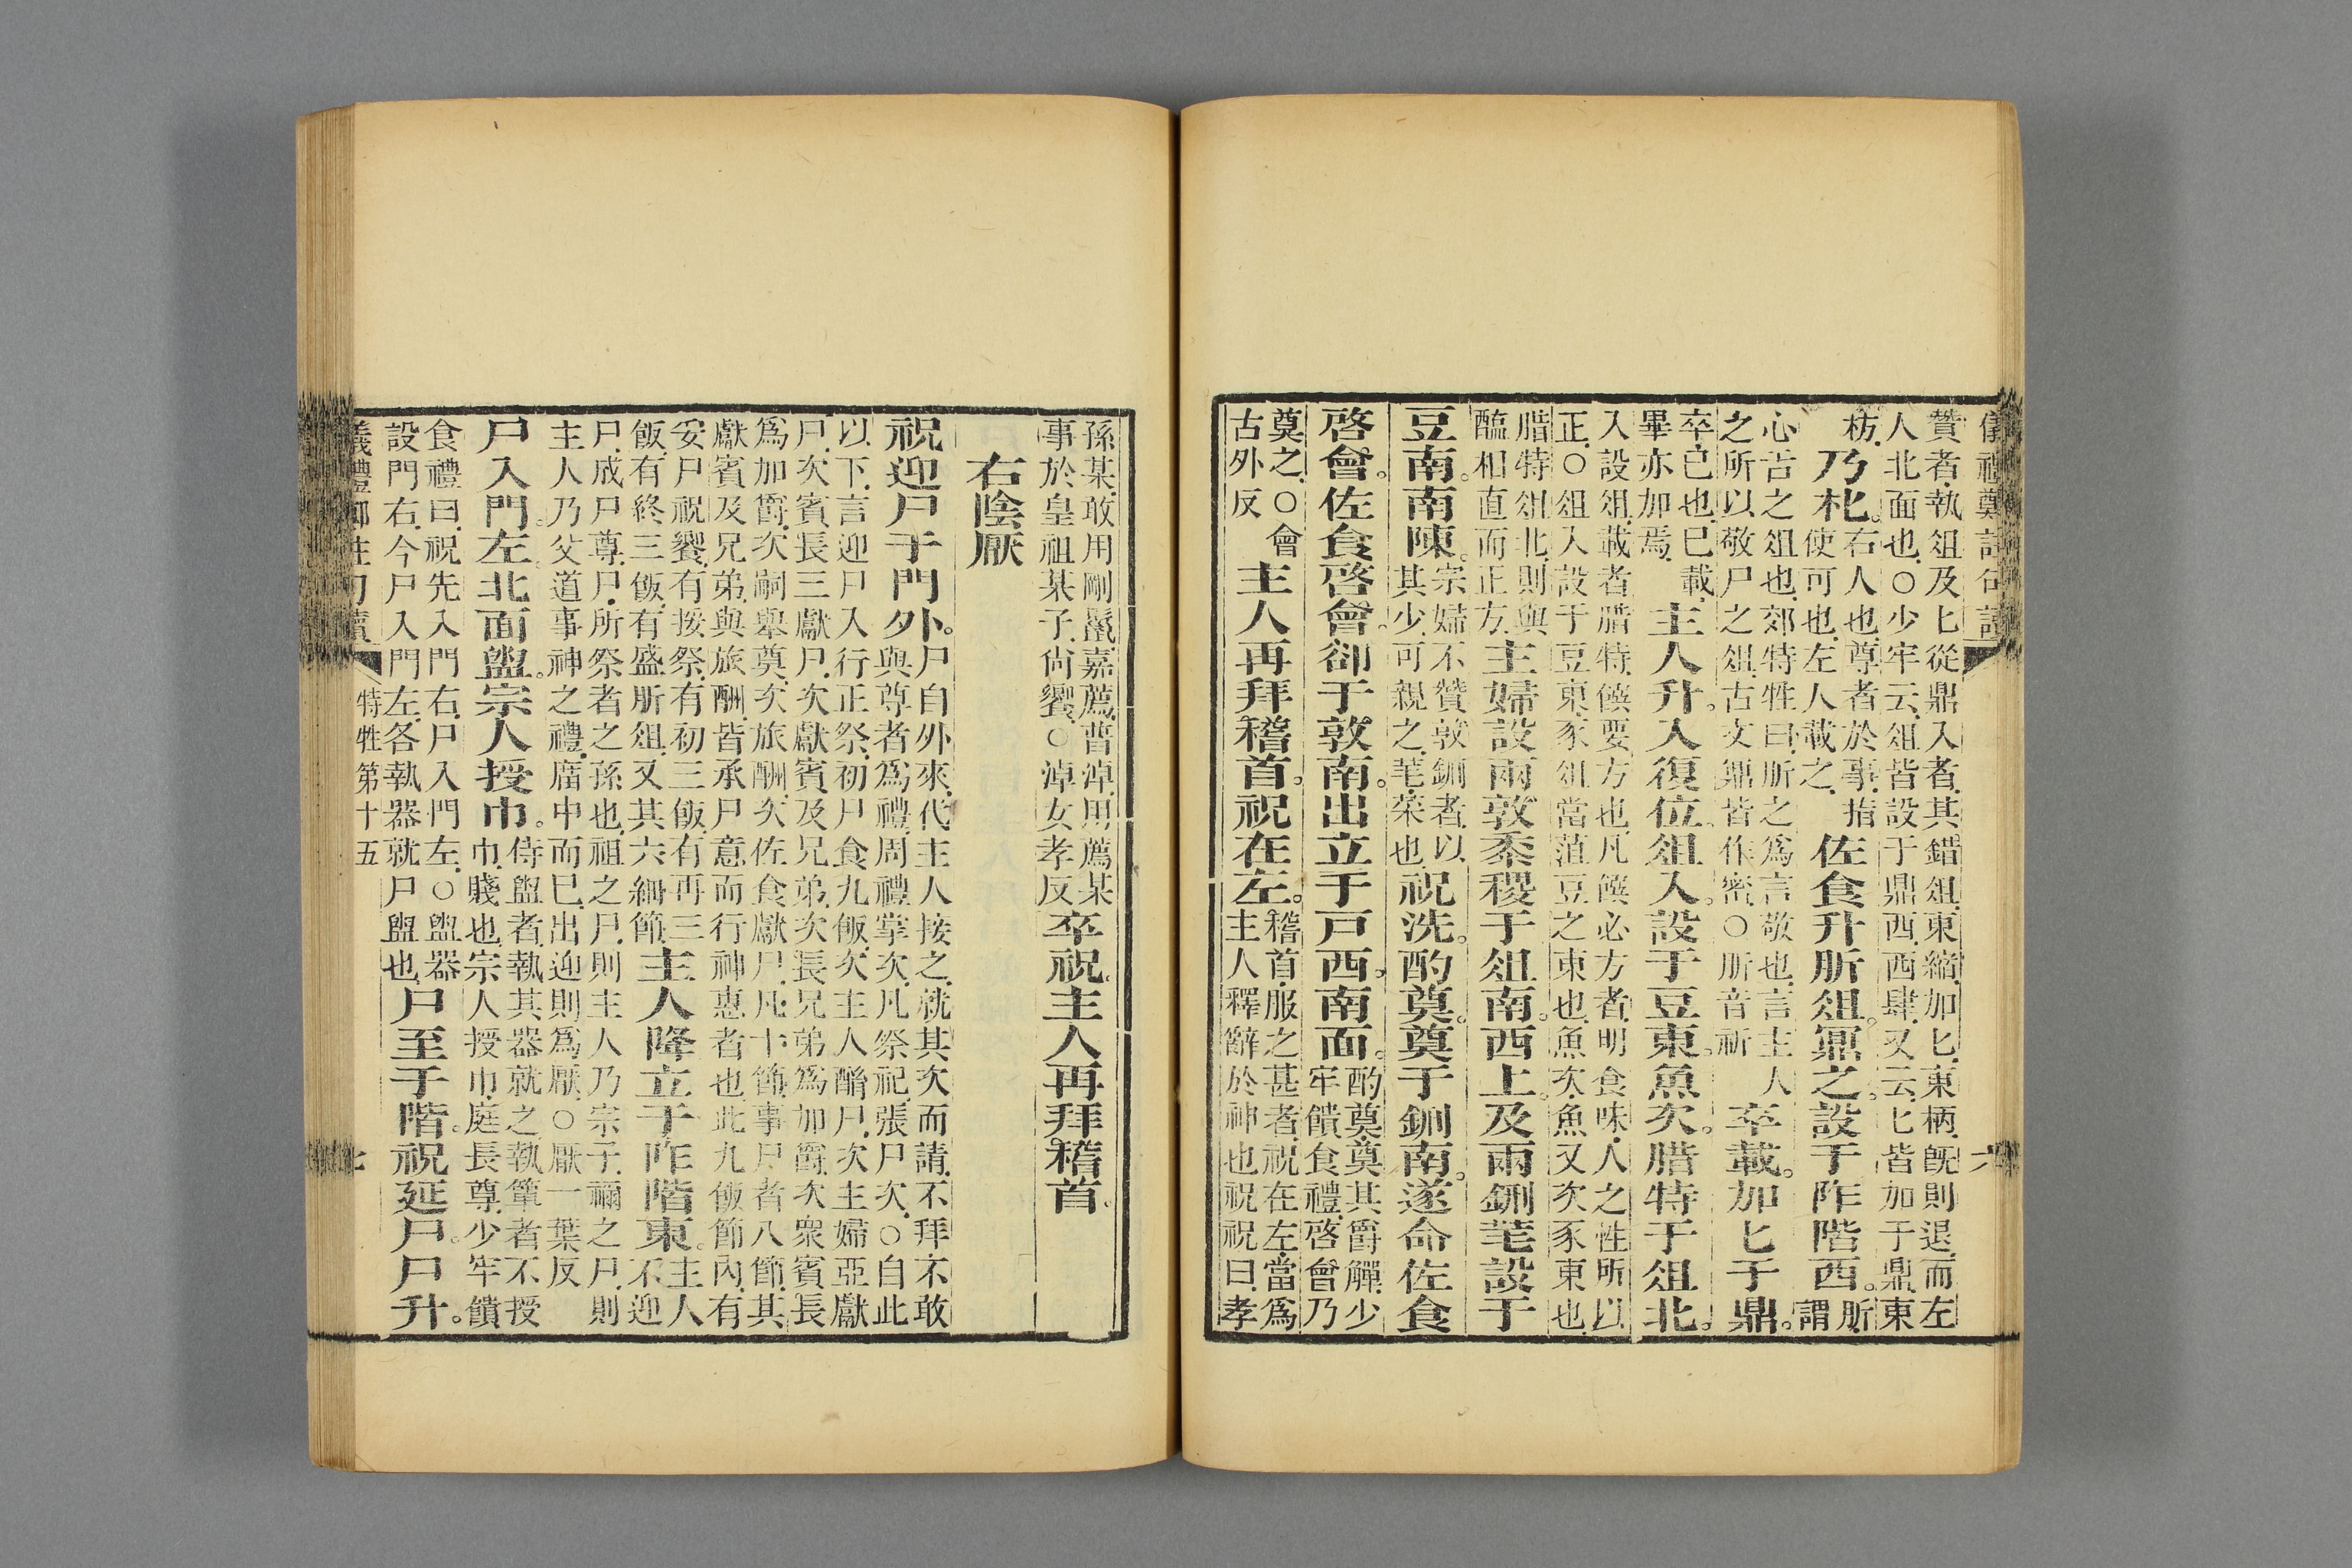 儀禮鄭註句讀 六
贊者執俎及匕從鼎入者其錯俎東縮加匕東柄旣則退而左
人北面也○少牢云俎皆設于鼎西西肆又云匕皆加于鼎東
枋乃朼。右人也尊者於事指使可也左人載之佐食升肵俎。鼏之。設于阼階西。肵謂
心舌之俎也郊特牲曰肵之爲言敬也言主人之所以敬尸之俎古文鼏皆作密○肵音祈卒載。加匕于鼎。
卒已也已載畢亦加焉主人升。入復位。俎入。設于豆東。魚次。腊特于俎北。
入設俎載者腊特饌要方也凡饌必方者明食味人之性所以
正○俎入設于豆東豕俎當菹豆之東也魚次魚又次豕東也
腊特俎北則與醢相直而正方主婦設兩敦黍稷于俎南。西上。及兩鉶芼設于
豆南。南陳。宗婦不贊敦鉶者以其少可親之芼菜也祝洗。酌奠。奠于鉶南。遂命佐食
啓會。佐食啓會。卻于敦南。出立于戶西。南面。酌奠奠其爵觶少牢饋食禮啓會乃
奠之○會古外反主人再拜稽首。祝在左。稽首服之甚者祝在左當爲主人釋辭於神也祝祝曰孝
孫某敢用剛鬛嘉薦普淖用薦某事於皇祖某子尙饗○淖女孝反卒祝。主人再拜稽首。
右陰厭
祝迎尸于門外。尸自外來代主人接之就其次而請不拜不敢與尊者爲禮周禮掌次凡祭祀張尸次○自此
以下言迎尸入行正祭初尸食九飯次主人酳尸次主婦亞獻
尸次賓長三獻尸次獻賓及兄弟次長兄弟爲加爵次衆賓長
爲加爵次嗣舉奠次旅酬次佐食獻尸凡十節事尸者八節其
獻賓及兄弟與旅酬皆承尸意而行神惠者也此九飯節內有
妥尸祝饗有挼祭有初三飯有再三飯有終三飯有盛肵俎又其六細節主人降立于阼階東。主人不迎
尸成尸尊尸所祭者之孫也祖之尸則主人乃宗子禰之尸則
主人乃父道事神之禮廟中而已出迎則爲厭○厭一葉反
尸入門左。北面盥。宗人授巾。侍盥者執其器就之執簞者不授巾賤也宗人授巾庭長尊少牢饋
食禮曰祝先入門右尸入門左○盥器設門右今尸入門左各執器就尸盥也尸至于階。祝延尸。尸升。
儀禮鄭註句讀 特牲第十五 七